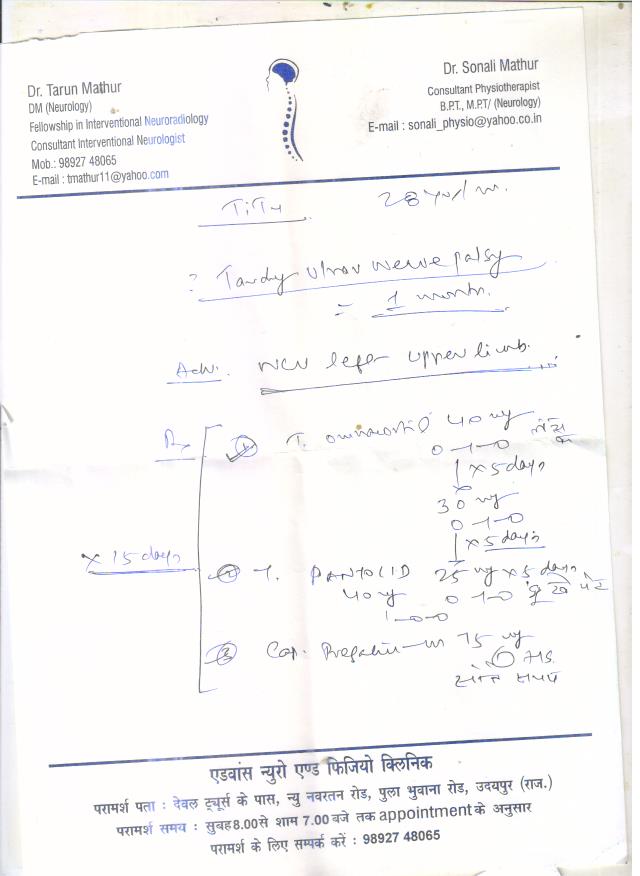 Dr. Tarun Mathur
DM (Neurology)
Fellowship in Interventional Neuroradiology
Consultant Interventional Neurologist
Mob.: 98927 48065
E-mail : tmathur11@yahoo.com
Dr. Sonali Mathur
Consultant Physiotherapist
B.P.T., M.P.T/ (Neurology)
E-mail : sonali_physio@yahoo.co.in
28 yr/m.
? Tardy ulnar nerve palsy
= 1 month.
Adv. NCV left upper limb.
Rx
① T. 40 mg
0-1-0
x 5 days
30 mg
0-1-0
x 5 days
x 15 days
② T. PANTOCID 25 mg x 5 days
40 mg 0-1-0 भूखे पेट
1-0-0
③ Cap. 75 mg
HS.
सोते समय
एडवांस न्युरो एण्ड फिजियो क्लिनिक
परामर्श पता : देवल ट्यूर्स के पास, न्यु नवरतन रोड, पुला भुवाना रोड, उदयपुर (राज.)
परामर्श समय : सुबह 8.00 से शाम 7.00 बजे तक appointment के अनुसार
परामर्श के लिए सम्पर्क करें : 98927 48065